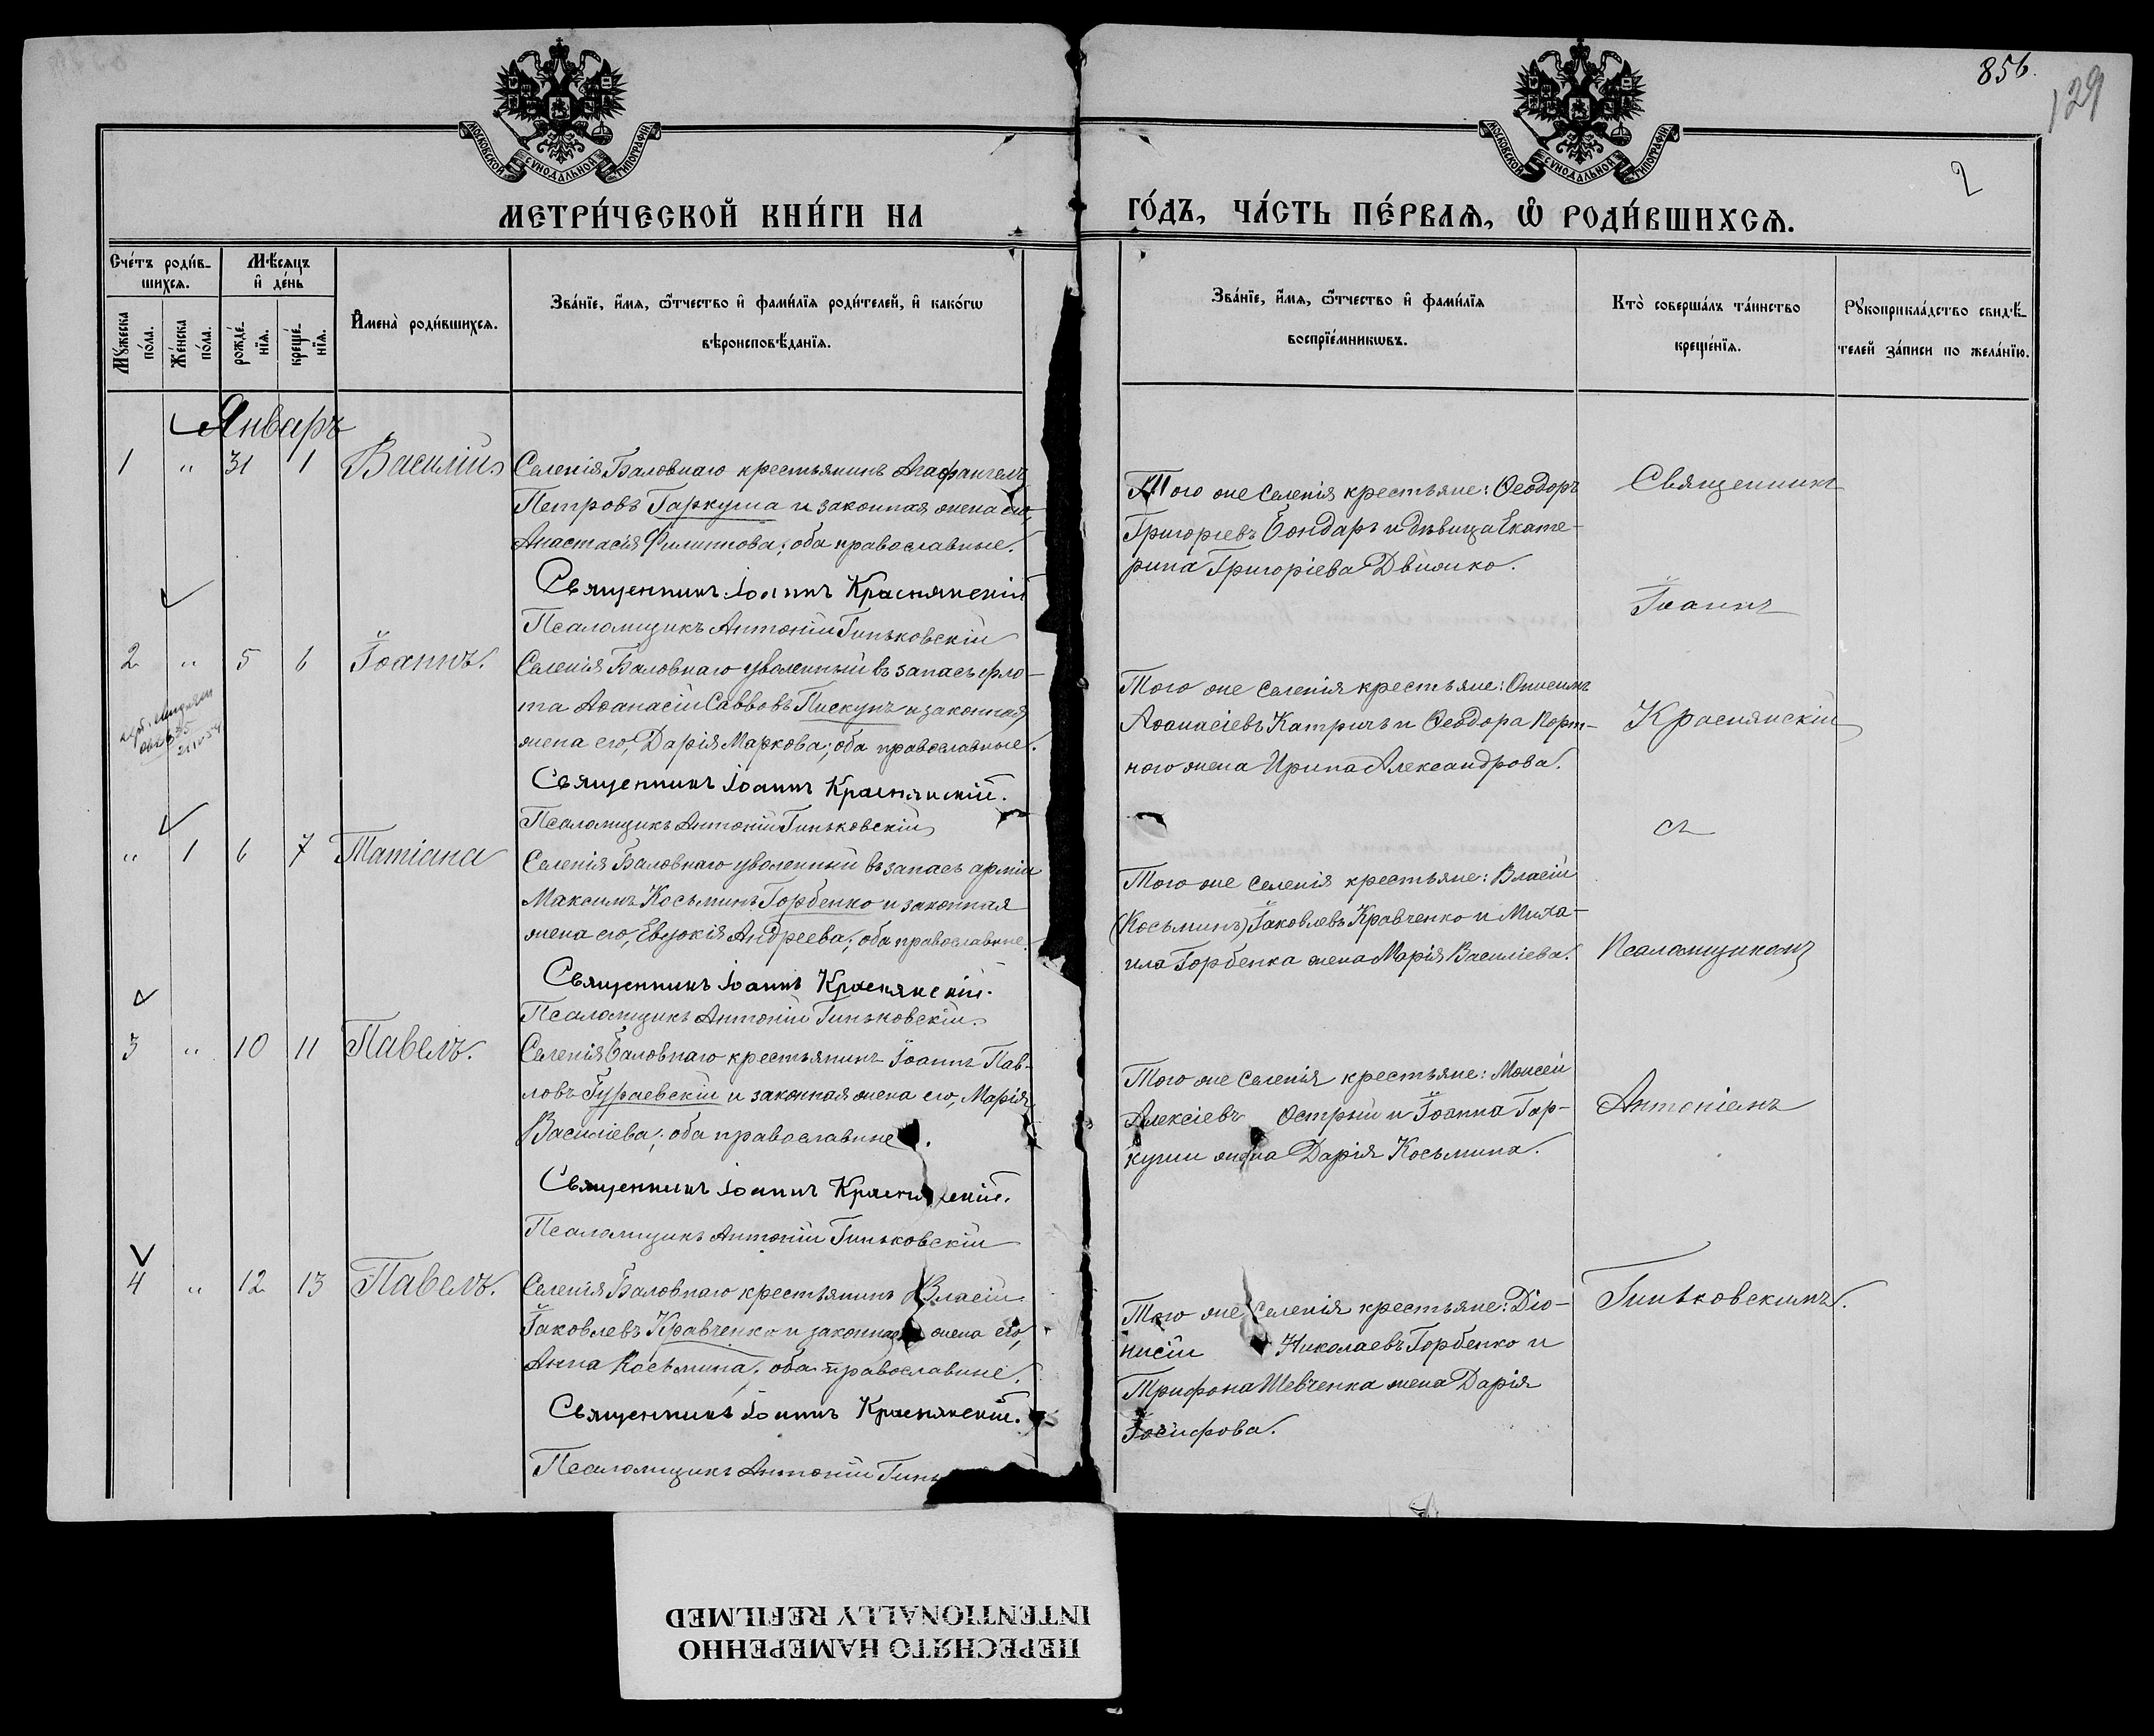 856.
129
2
МОСКОВСКОЙ СУНОДАЛЬНОЙ ТИПОГРАФІИ
МОСКОВСКОЙ СУНОДАЛЬНОЙ ТИПОГРАФІИ
МЕТРИ́ЧЕСКОЙ КНИ́ГИ НА
ГО́ДЪ, ЧА́СТЬ ПЕ́РВАѦ, Ѽ РОДИ́ВШИХСѦ.
Сче́тъ роди́в-
шихсѧ.
Мѣ́сѧцъ
и҆ де́нь
Мꙋ́жеска
по́ла.
Же́нска
по́ла.
рожде́-
нїѧ.
креще́-
нїѧ.
И҆мена̀ роди́вшихсѧ.
Зва́нїе, и҆́мѧ, ѻ҆́тчество и҆ фами́лїѧ роди́телей, и҆ како́гѡ
вѣроисповѣ́данїѧ.
Зва́нїе, и҆́мѧ, ѻ҆́тчество и҆ фами́лїѧ
воспрїе́мникѡвъ.
Кто̀ соверша́лъ та́инство
креще́нїѧ.
Рꙋкоприкла́дство свидѣ́-
телей за́писи по жела́нїю.
Январь
1 " 31 1 Василій
Селенія Баловнаго крестьянинъ Агафангелъ
Петровъ Гаркуша и законная жена его,
Анастасія Филиппова; оба православные.
Священникъ Іоаннъ Краснянскій
Псаломщикъ Антоній Гиньковскій
Того же селенія крестьяне: Ѳеодоръ
Григоріевъ Бондарь и дѣвица Екате-
рина Григоріева Движко.
Священникъ
Іоаннъ
Краснянскій
съ
Псаломщикомъ
Антоніемъ
Гиньковскимъ.
2 " 5 6 Іоаннъ.
Селенія Баловнаго уволенный въ запасъ фло-
та Аѳанасій Саввовъ Пискунъ и законная
жена его, Дарія Маркова; оба православные.
Священникъ Іоаннъ Краснянскій.
Псаломщикъ Антоній Гиньковскій
Того же селенія крестьяне: Онисимъ
Аѳанасіевъ Катричъ и Ѳеодора Порт-
ного жена Ирина Александрова.
" 1 6 7 Татіана
Селенія Баловнаго уволенный въ запасъ арміи
Максимъ Косьминъ Горбенко и законная
жена его, Евдокія Андреева; оба православные.
Священникъ Іоаннъ Краснянскій.
Псаломщикъ Антоній Гиньковскій.
Того же селенія крестьяне: Власій
(Косьминъ) Іаковлевъ Кравченко и Миха-
ила Горбенка жена Марія Василіева.
3 " 10 11 Павелъ.
Селенія Баловнаго крестьянинъ Іоаннъ Пав-
ловъ Гураевскій и законная жена его, Марія
Василіева; оба православные.
Священникъ Іоаннъ Краснянскій.
Псаломщикъ Антоній Гиньковскій
Того же селенія крестьяне: Моисей
Алексіевъ Острый и Іоанна Гар-
куши жена Дарія Косьмина.
4 " 12 13 Павелъ.
Селенія Баловнаго крестьянинъ Власій
Іаковлевъ Кравченко и законная жена его,
Анна Косьмина; оба православные.
Священникъ Іоаннъ Краснянскій.
Псаломщикъ Антоній Гинь
Того же селенія крестьяне: Діо-
нисій Николаевъ Горбенко и
Трифона Шевченка жена Дарія
Іосифова.
ПЕРЕСНЯТО НАМЕРЕННО
INTENTIONALLY REFILMED